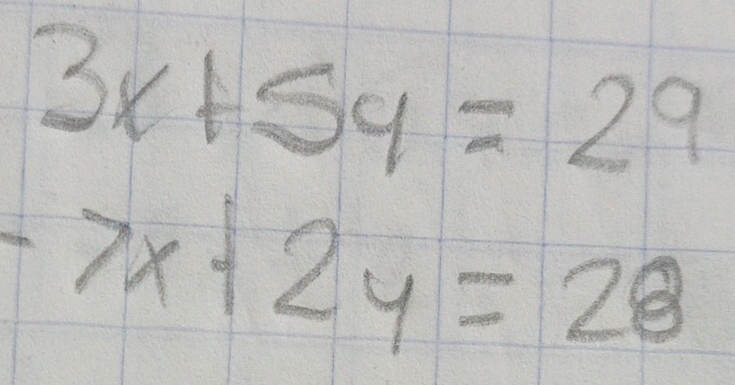 3x+5y = 29
- 7x+2y = 28